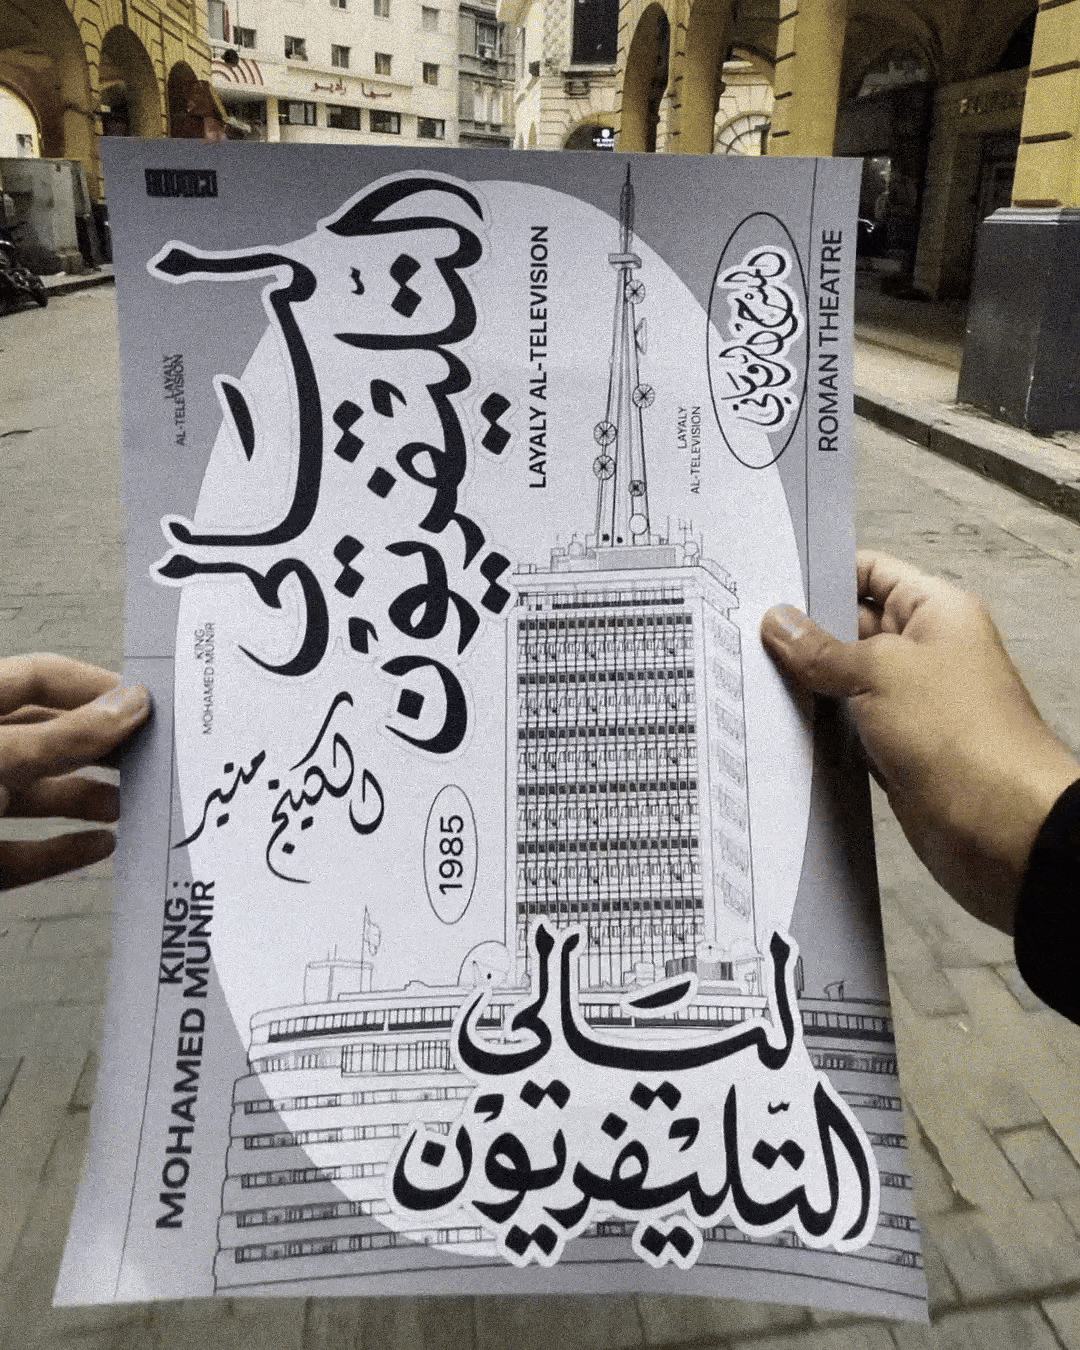 سينما راديو
ليالى
التليفزيون
LAYALY AL-TELEVISION
LAYALY
AL-TELEVISION
LAYALY
AL-TELEVISION
المسرح الرومانى
ROMAN THEATRE
KING
MOHAMED MUNIR
الكينج
منير
1985
KING :
MOHAMED MUNIR
ليالى
التليفزيون